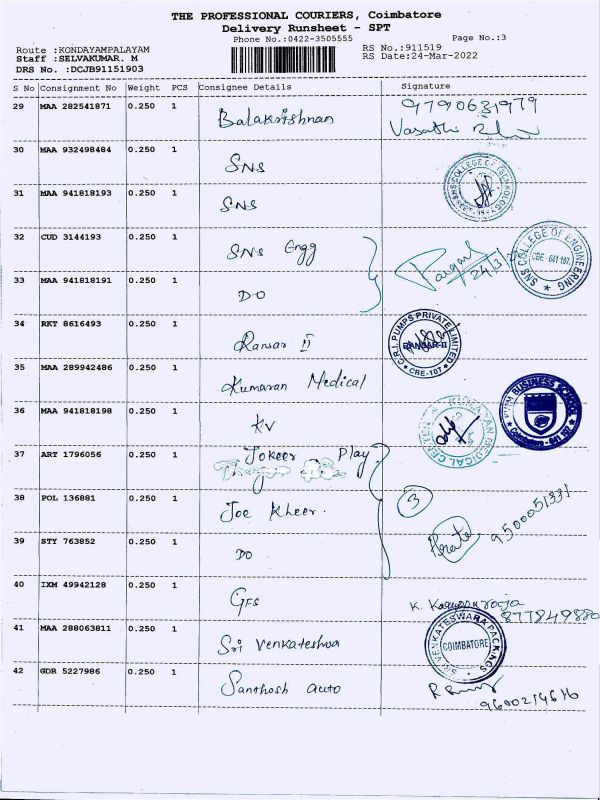 THE PROFESSIONAL COURIERS, Coimbatore
Delivery Runsheet - SPT
Phone No.:0422-3505555 Page No.:3
Route :KONDAYAMPALAYAM RS No.:911519
Staff :SELVAKUMAR. M RS Date:24-Mar-2022
DRS No. :DCJB91151903
S No Consignment No Weight PCS Consignee Details Signature
29 MAA 282541871 0.250 1 Balakrishnan 9790631979
Vasathi
30 MAA 932498484 0.250 1 SNS
SNS COLLEGE OF TECHNOLOGY
31 MAA 941818193 0.250 1 SNS
32 CUD 3144193 0.250 1 SNS Engg
SNS COLLEGE OF ENGINEERING
CBE - 641 107.
33 MAA 941818191 0.250 1 DO
34 RKT 8616493 0.250 1 Ransar II
C.R.I. PUMPS PRIVATE LIMITED
RANSAR-II
CBE-107
35 MAA 289942486 0.250 1 Kumaran Medical
36 MAA 941818198 0.250 1 KV
MEDICAL CENTER
BUSINESS SCHOOL
Coimbatore - 641 107
37 ART 1796056 0.250 1 Jokeer Play
38 POL 136881 0.250 1 Joe Kheer. 3
39 STY 763852 0.250 1 DO 9500051331
40 IXM 49942128 0.250 1 GFS K. Karuppuraja
877849880
41 MAA 288063811 0.250 1 Sri Venkateshwa
SRI VENKATESWARA PACKINGS
COIMBATORE
42 GDR 5227986 0.250 1 Santhosh auto
9600214616